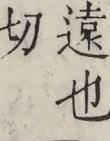 遠也
切